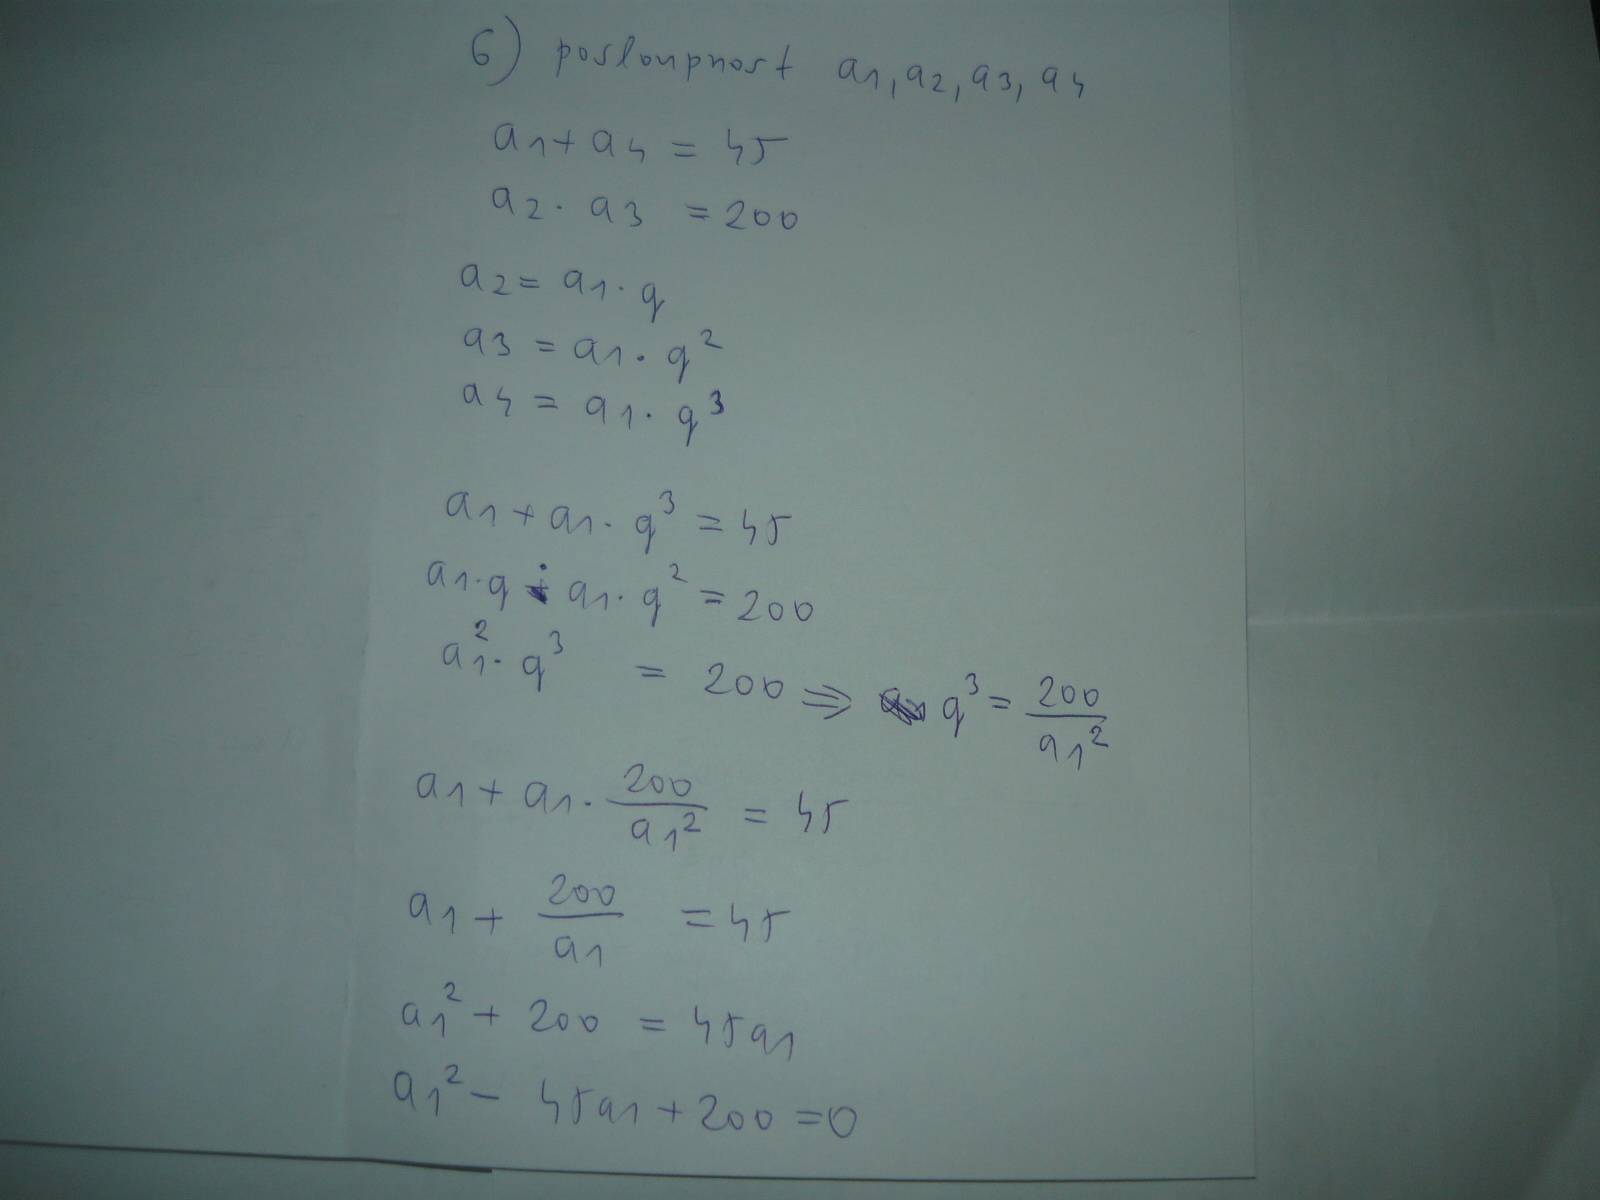 6) posloupnost a1, a2, a3, a4
a1 + a4 = 45
a2 · a3 = 200
a2 = a1 · q
a3 = a1 · q²
a4 = a1 · q³
a1 + a1 · q³ = 45
a1 · q · a1 · q² = 200
a1² · q³ = 200 ⇒ q³ = 200/a1²
a1 + a1 · 200/a1² = 45
a1 + 200/a1 = 45
a1² + 200 = 45a1
a1² - 45a1 + 200 = 0